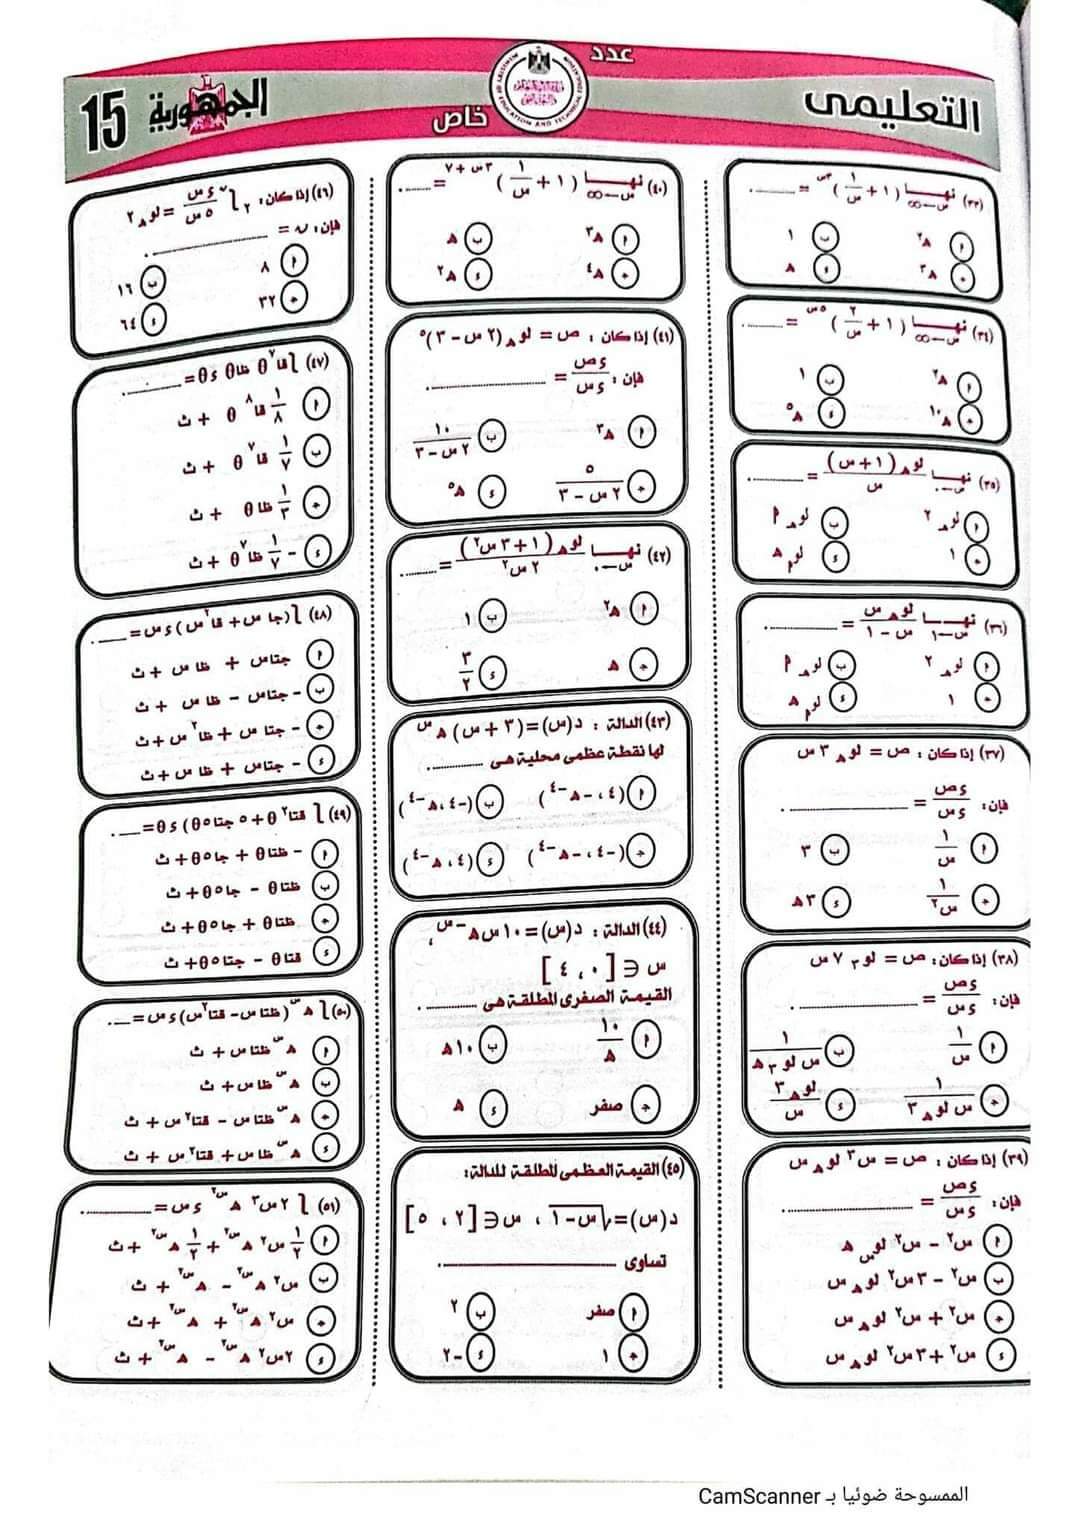 التعليمى
عدد
خاص
الجمهورية
15
(٣٣) نهــا س←∞ (١ + ١/س)^٣س = ........
أ ھ^٢ ب ١
ج ھ^٣ د ھ
(٣٤) نهــا س←∞ (١ + ٢/س)^٥س = ........
أ ھ^٢ ب ١
ج ھ^١٠ د ھ^٥
(٣٥) نهــا س←٠ لوھ(١ + س)/س = ........
أ لوھ ٢ ب لوھ أ
ج ١ د لوأ ھ
(٣٦) نهــا س←١ لوھ س/س - ١ = ........
أ لوھ ٢ ب لوھ أ
ج ١ د لوأ ھ
(٣٧) إذا كان : ص = لوھ ٣ س
فإن : ءص/ءس = ........
أ ١/س ب ٣
ج ١/س٢ د ٣ھ
(٣٨) إذا كان : ص = لو٣ ٧ س
فإن : ءص/ءس = ........
أ ١/س ب ١/س لو٣ ھ
ج ١/س لوھ ٣ د لوھ ٣/س
(٣٩) إذا كان : ص = س^٣ لوھ س
فإن : ءص/ءس = ........
أ س^٢ - س^٢ لوس ھ
ب س^٢ - ٣ س^٢ لوھ س
ج س^٢ + س^٢ لوھ س
د س^٢ + ٣ س^٢ لوھ س
(٤٠) نهــا س←∞ (١ + ١/س)^٣س + ٧ = ........
أ ھ^٣ ب ھ
ج ھ^٤ د ھ^٢
(٤١) إذا كان : ص = لوھ (٢ س - ٣)^٥
فإن : ءص/ءس = ........
أ ھ^٣ ب ١٠/٢ س - ٣
ج ٥/٢ س - ٣ د ھ^٥
(٤٢) نهــا س←٠ لوھ (١ + ٣ س^٢)/٢ س^٢ = ........
أ ھ^٢ ب ١
ج ھ د ٣/٢
(٤٣) الدالة : د(س) = (٣ + س) ھ^س
لها نقطة عظمى محلية هى ........
أ (٤ ، - ھ^-٤) ب (-٤ ، ھ^-٤)
ج (-٤ ، - ھ^-٤) د (٤ ، ھ^-٤)
(٤٤) الدالة : د(س) = ١٠ س ھ^-س ،
س ∈ [٠ ، ٤]
القيمة الصغرى المطلقة هى ........
أ ١٠/ھ ب ١٠ ھ
ج صفر د ھ
(٤٥) القيمة العظمى المطلقة للدالة :
د(س) = √(س - ١) ، س ∈ [٢ ، ٥]
تساوى ........
أ صفر ب ٢
ج ١ د -٢
(٤٦) إذا كان : ∫٢^ن ءس/٥س = لوھ ٢
فإن : ن = ........
أ ٨ ب ١٦
ج ٣٢ د ٦٤
(٤٧) ∫ قا^٧ θ ظا θ ءθ = ........
أ ١/٨ قا^٨ θ + ث
ب ١/٧ قا^٧ θ + ث
ج ١/٣ ظا θ + ث
د - ١/٧ ظا^٧ θ + ث
(٤٨) ∫ (جا س + قا^٢ س) ءس = ........
أ جتا س + ظا س + ث
ب - جتا س - ظا س + ث
ج - جتا س + ظا^٢ س + ث
د - جتا س + ظا س + ث
(٤٩) ∫ (قتا^٢ θ + ٥ جتا ٥θ) ءθ = ....
أ - ظتا θ + جا ٥θ + ث
ب ظتا θ - جا ٥θ + ث
ج ظتا θ + جا ٥θ + ث
د قتا θ - جتا ٥θ + ث
(٥٠) ∫ ھ^س (ظتا س - قتا^٢ س) ءس = ....
أ ھ^س ظتا س + ث
ب ھ^س ظا س + ث
ج ھ^س ظتا س - قتا^٢ س + ث
د ھ^س ظا س + قتا^٢ س + ث
(٥١) ∫ ٢ س^٣ ھ^س٢ ءس = ........
أ ١/٢ س^٢ ھ^س٢ + ١/٢ ھ^س٢ + ث
ب س^٢ ھ^س٢ - ھ^س٢ + ث
ج س^٢ ھ^س٢ + ھ^س٢ + ث
د ٢ س^٢ ھ^س٢ - ھ^س٢ + ث
الممسوحة ضوئيا بـ CamScanner